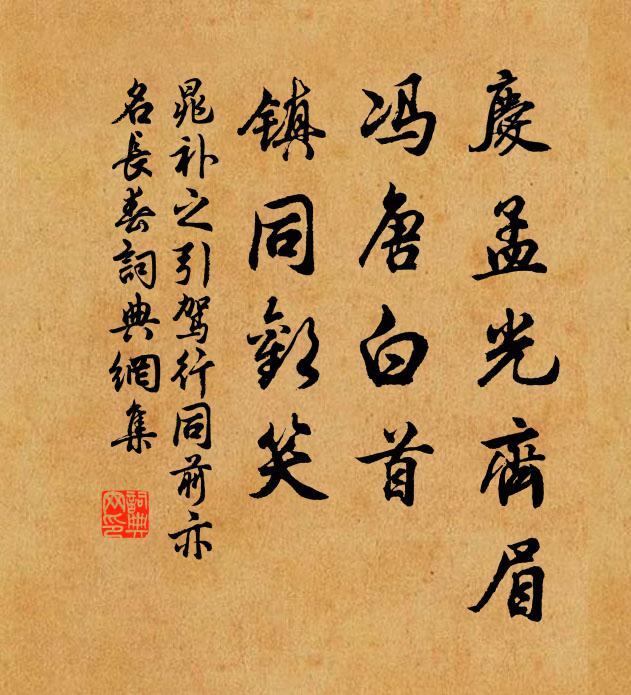 慶孟光齊眉
馮唐白首
鎮同歡笑
晁補之引駕行同前亦
名長春詞典網集
詞典網印